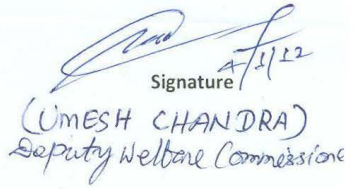 Signature 4/1/12
(UMESH CHANDRA)
Deputy Welfare Commissione